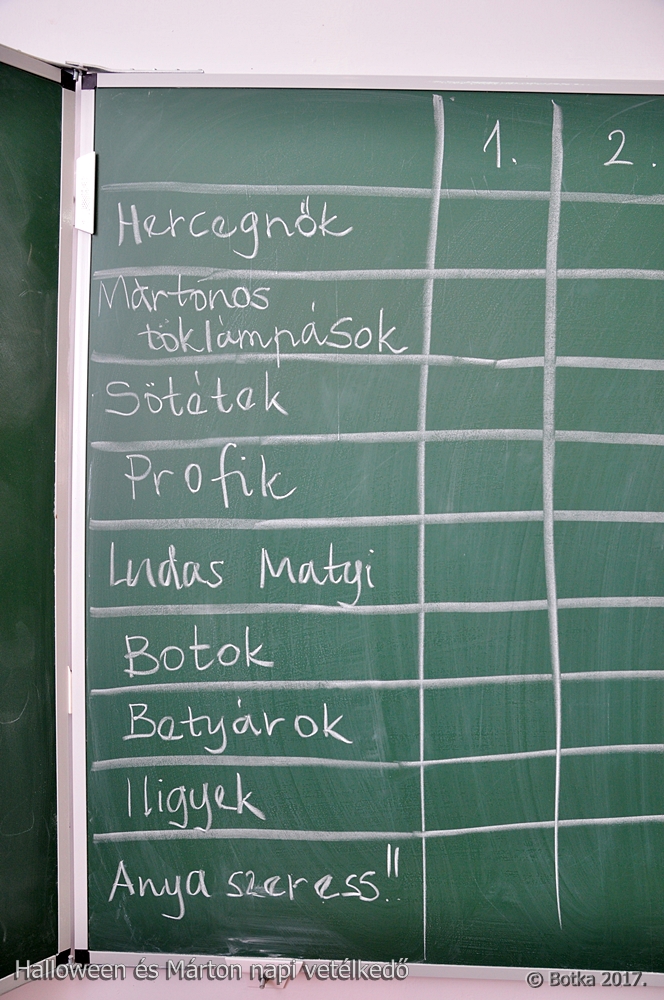 1. 2.
Hercegnők
Mártonos
töklámpások
Sötétek
Profik
Ludas Matyi
Botok
Betyárok
Iligyek
Anya szeress!!
Halloween és Márton napi vetélkedő
© Botka 2017.